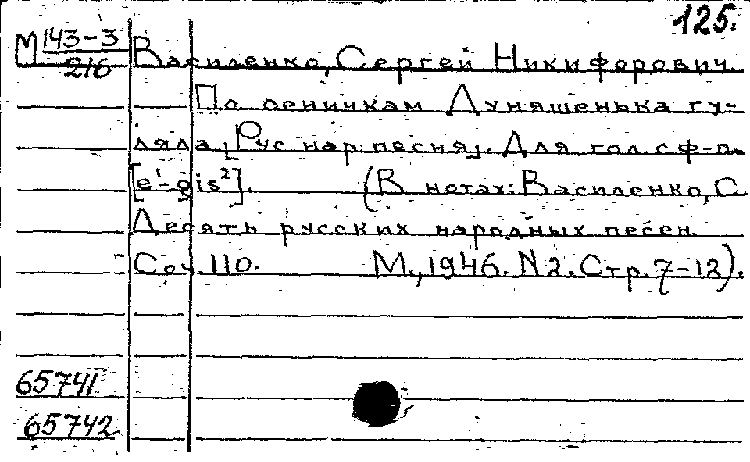 125.
М 143-3
216
Василенко, Сергей Никифорович.
По сеничкам Дуняшенька гу-
ляла, [Рус нар песня]. Для гол с ф-п.
[e¹-gis²]. (В нотах: Василенко, С.
Десять русских народных песен.
Соч. 110. М., 1946. N 2. Стр. 7-12).
65741
65742